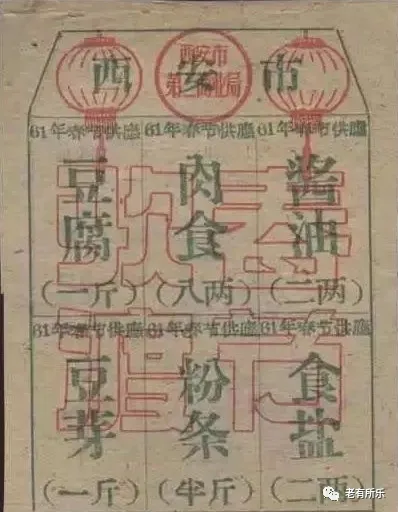 西安市
西安市
61年春节供應
豆腐
(一斤)
61年春节供應
肉食
(八两)
61年春节供應
酱油
(二两)
61年春节供應
豆芽
(一斤)
61年春节供應
粉条
(半斤)
61年春节供應
食盐
(二两)
老有所乐